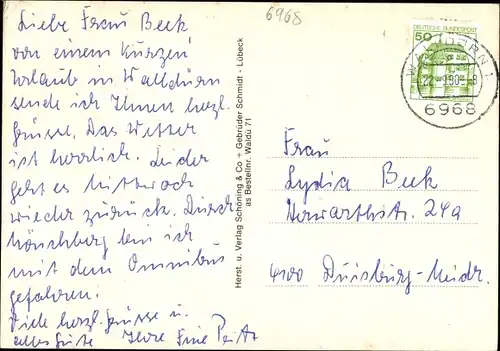 6968
Liebe Frau Beck
von einem kurzen
Urlaub in Walldürn
sende ich Ihnen herzl.
Grüsse. Das Wetter
ist herrlich. Leider
geht es Mittwoch
wieder zurück. Durch
bin ich
mit dem Omnibus
gefahren.
Viele herzl. Grüsse u.
alles Gute Ihre
Herst. u. Verlag Schöning & Co + Gebrüder Schmidt - Lübeck
as Bestellnr. Waldü 71
DEUTSCHE BUNDESPOST
50
WALLDÜRN 1
6968
Frau
Lydia Beck
24a
4100 Duisburg-